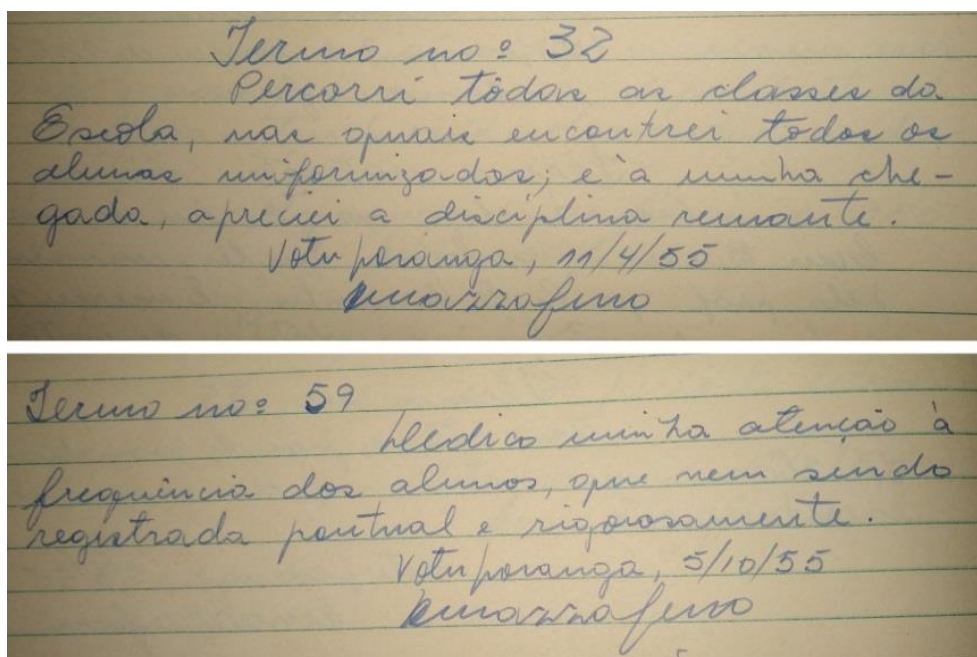 Termo no: 32
Percorri tôdas as classes da
Escola, nas quais encontrei todos os
alunos uniformizados; e à minha che-
gada, apreciei a disciplina reinante.
Votuporanga, 11/4/55
Termo no: 59
Dedico minha atenção à
frequência dos alunos, que vem sendo
registrada pontual e rigorosamente.
Votuporanga, 5/10/55